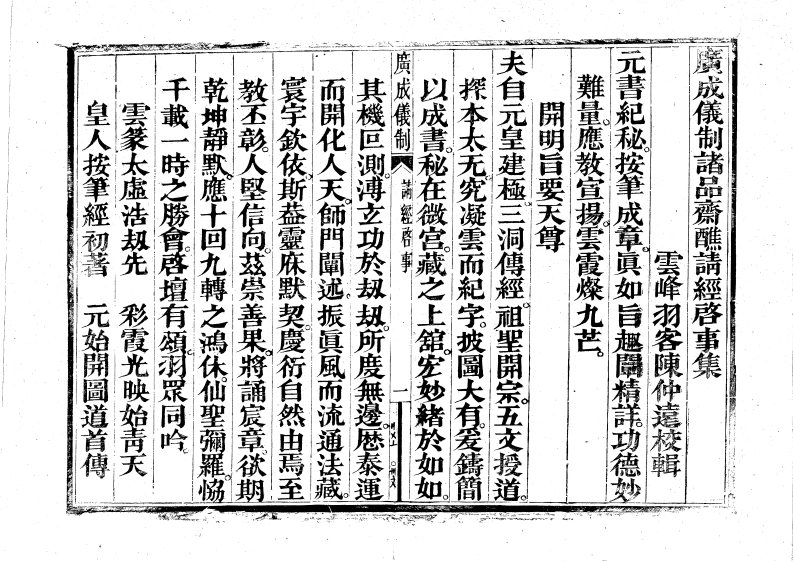 廣成儀制諸品齋醮請經啓事集
雲峰羽客陳仲遠校輯
元書紀秘。按筆成章。眞如旨趣闡精詳。功德妙
難量。應教宣揚。雲霞燦九芒。
開明旨要天尊
夫自元皇建極。三洞傳經。祖聖開宗。五文授道。
探本太无。究凝雲而紀字。披圖大有。爰鑄簡
以成書。秘在微宮。藏之上舘。宏妙緒於如如。
廣成儀制 請經啓事 一
其機叵測。溥玄功於刼刼。所度無邊。歷泰運
而開化人天。師門闡述。振眞風而流通法藏。
寰宇欽依。斯葢靈庥默契。慶衍自然。由焉至
教丕彰。人堅信向。茲崇善果。將誦宸章。欲期
乾坤靜默。應十回九轉之鴻休。仙聖彌羅。恊
千載一時之勝會。啓壇有頌。羽眾同吟。
雲篆太虛浩刼先 彩霞光映始靑天
皇人按筆經初著 元始開圖道首傳